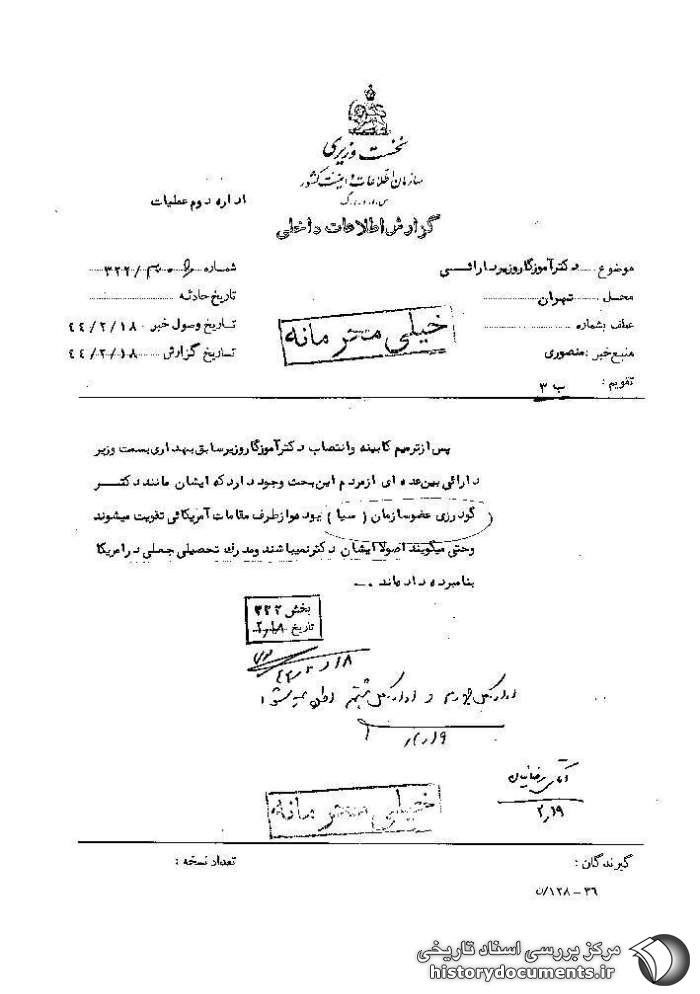 نخست وزیری
سازمان اطلاعات و امنیت کشور
س.ا.و.ا.ک
اداره دوم عملیات
گزارش اطلاعات داخلی
موضوع ..... دکتر آموزگار وزیر دارائی
محل ..... تهران
عطف بشماره
منبع خبر : منصوری
تقویم : ب ۳
شماره ۳۲۲/
تاریخ حادثه
تاریخ وصول خبر ۴۴/۲/۱۸
تاریخ گزارش ۴۴/۲/۱۸
خیلی محرمانه
پس از ترمیم کابینه و انتصاب دکتر آموزگار وزیر سابق بهداری بسمت وزیر
دارائی بین عده ای از مردم این بحث وجود دارد که ایشان مانند دکتر
گودرزی عضو سازمان ( سیا ) بوده و از طرف مقامات آمریکائی تقویت میشوند
و حتی میگویند اصولا ایشان دکتر نمیباشند و مدرک تحصیلی جعلی در امریکا
بنامبرده داده اند .
بخش ۳۲۲
تاریخ ۲/۱۸
۴۴/۲/۱۸
اداره کل چهارم و اداره کل هشتم
۲/۱۹
آقای رضائیان
۲/۱۹
خیلی محرمانه
گیرندگان :
تعداد نسخه :
۵/۱۲۸-۳۶
مرکز بررسی اسناد تاریخی
historydocuments.ir